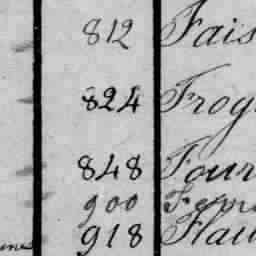 812 Fais
824 Frog
848 Four
900
918 Flau